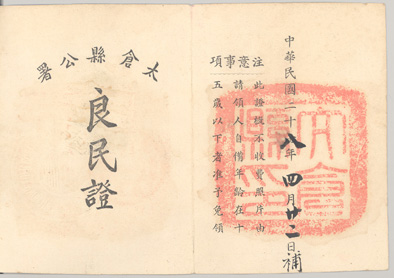 中華民國二十八年四月廿二日補
注意事項
此證概不收費照片由
請領人自備年齡在十
五歲以下者准予免領
太倉縣印
太倉縣公署
良民證